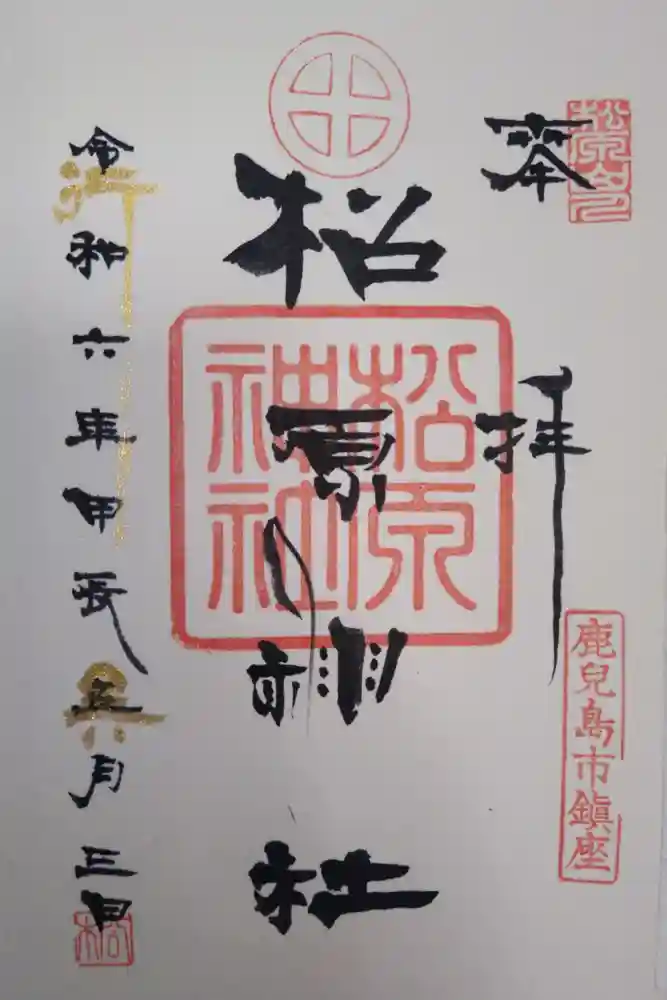 奉拝
松原神社
松原神社
鹿兒島市鎮座
令和六年甲辰正月三日
松